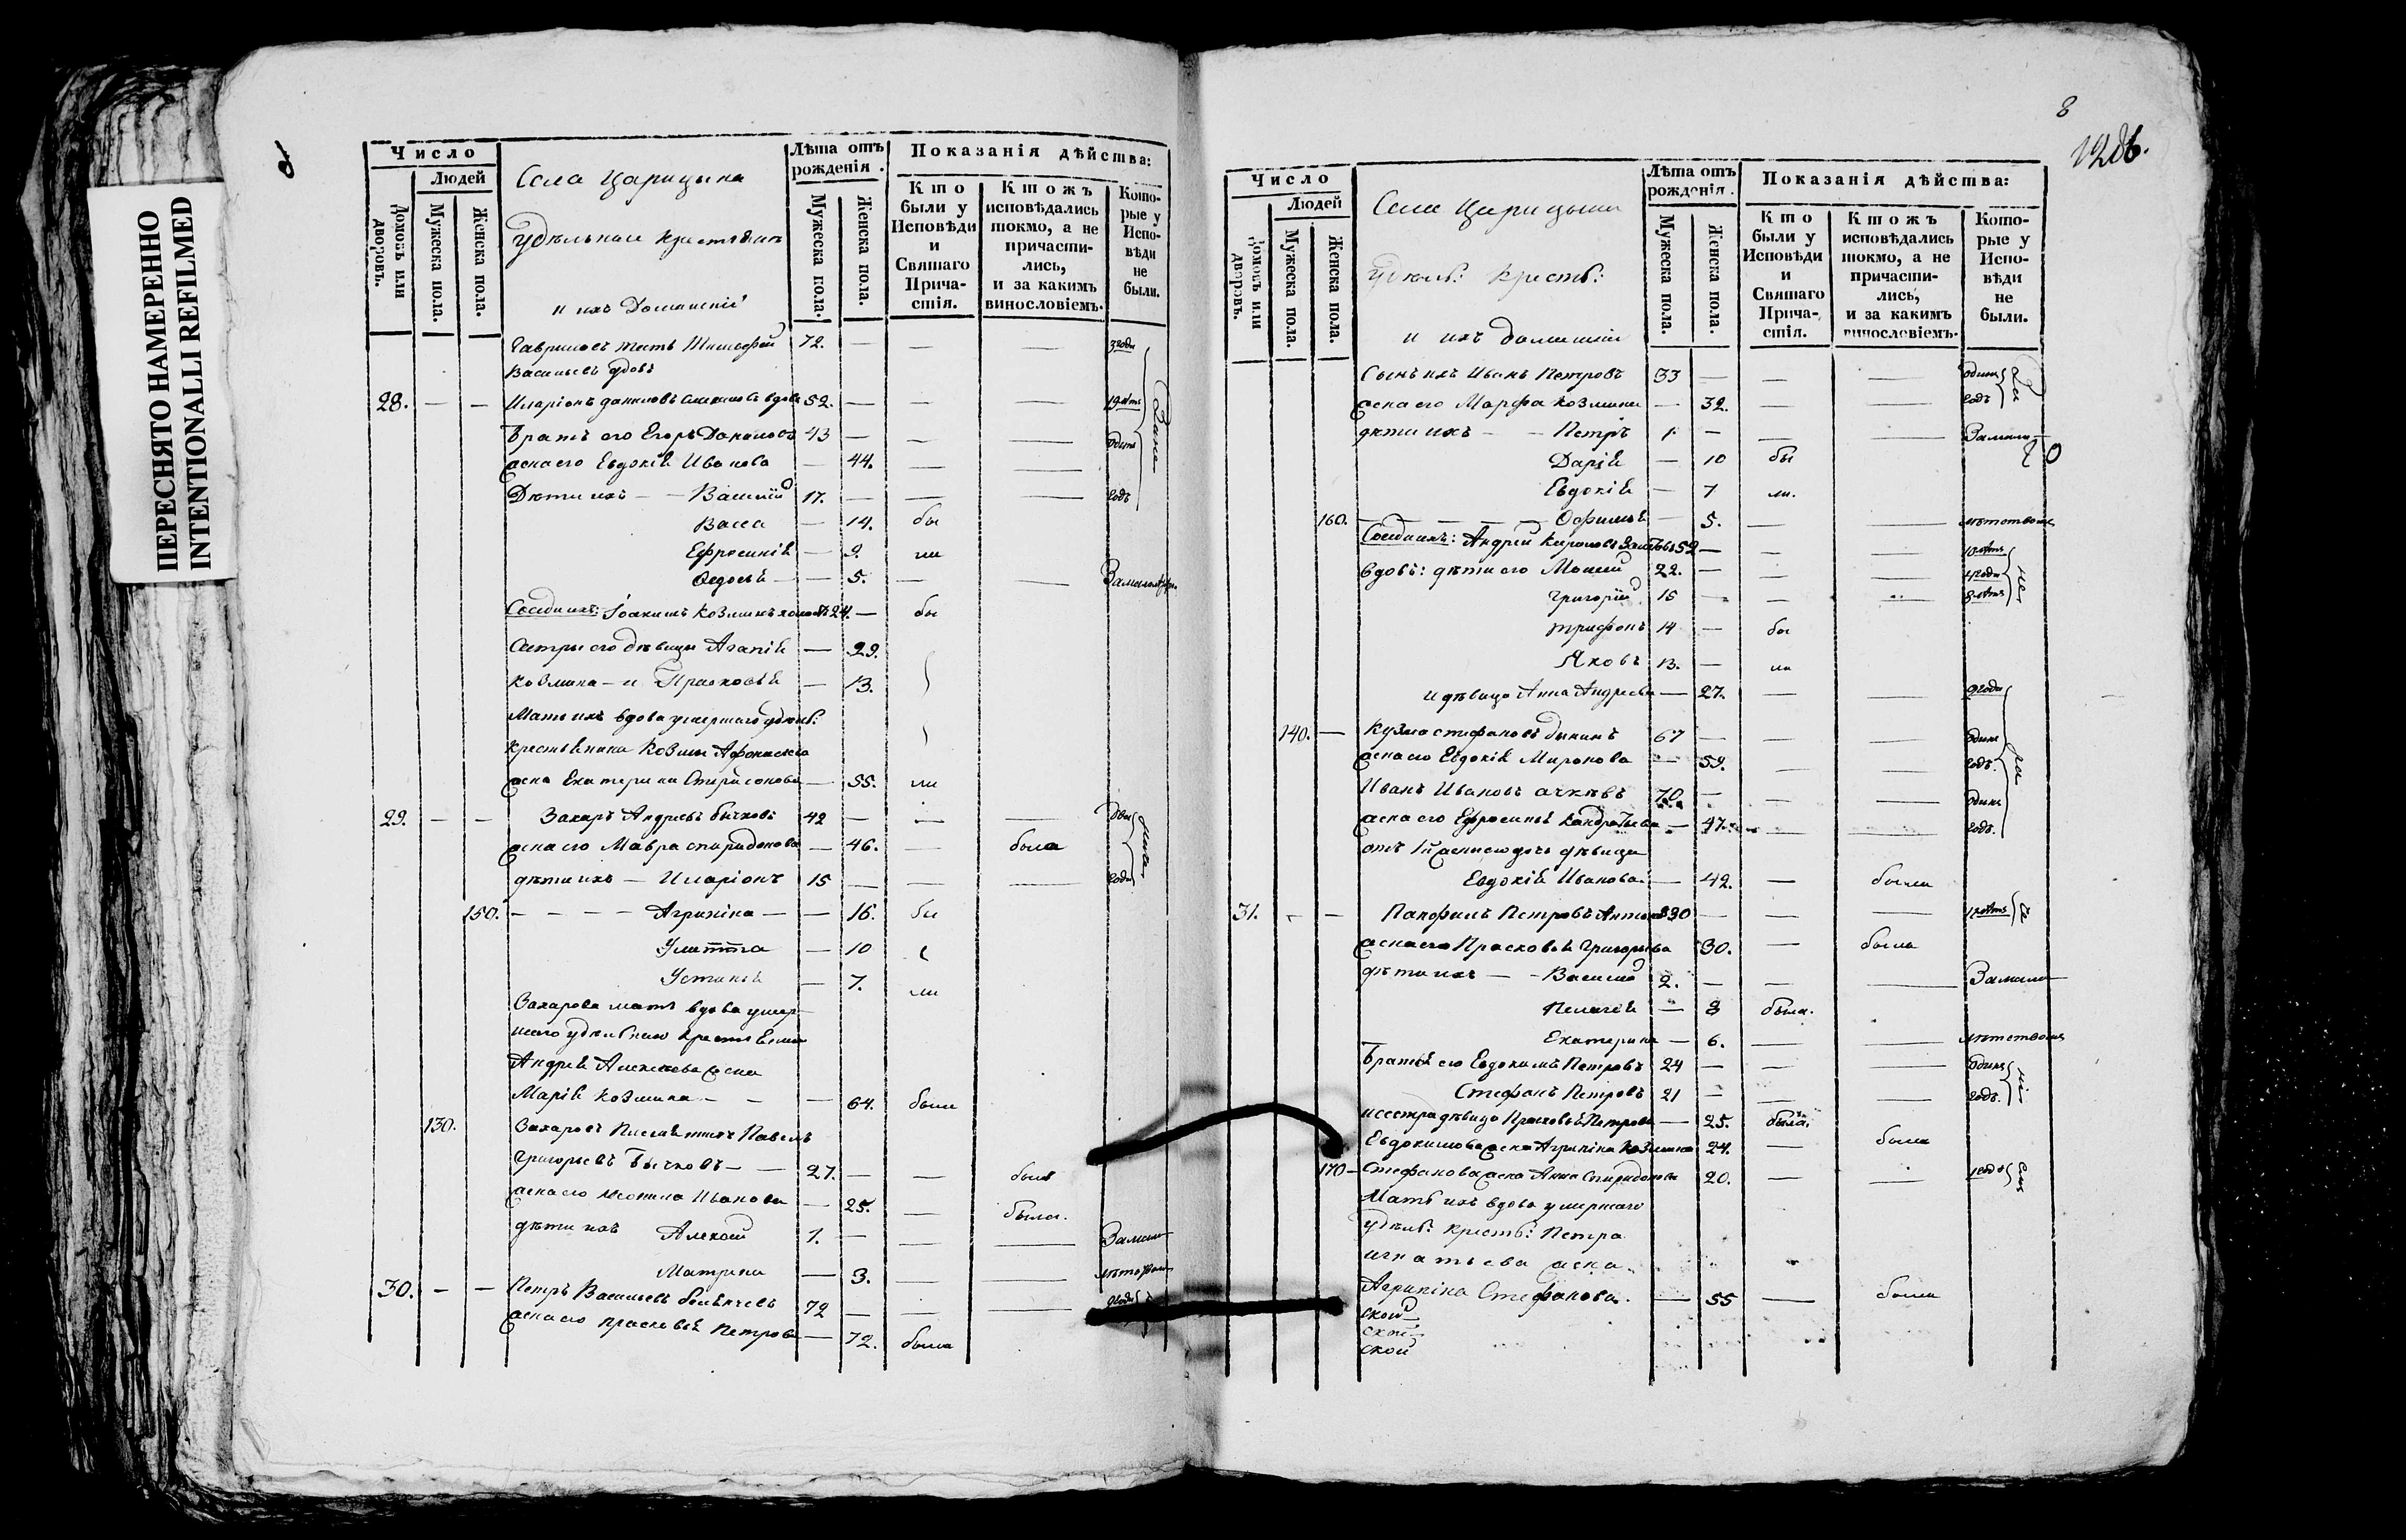 ПЕРЕСНЯТО НАМЕРЕННО
INTENTIONALLI REFILMED
Число
Людей
Домовъ или дворовъ.
Мужеска пола.
Женска пола.
Села Царицына
удѣльные крестьяне
и ихъ домашніе
Лѣта отъ рожденія.
Мужеска пола.
Женска пола.
Показанія дѣйства:
Кто были у Исповѣди и Святаго Причастія.
Ктожъ исповѣдались токмо, а не причастились, и за какимъ винословіемъ.
Которые у Исповѣди не были.
Гавриловъ тесть Тимофей 72. — — — 3 годы
Васильевъ вдовъ
28. — — Иларіонъ Даниловъ вдовъ 52. — — —
Братъ его Егоръ Даниловъ 43 — — — одинъ
жена его Евдокія Иванова — 44. — —
Дѣти ихъ — — Василій 17. — — — годъ
Васса — 14. бы
Ефросинія — 9. ли
Федосья — — 5. — — За малолѣт.
Сосѣди ихъ: Іоакимъ Козминъ 24. — бы
Сестры его дѣвицы Агапія — 29.
Козмина — и Прасковья — 13.
Мать ихъ вдова умершаго удѣль:
крестьянина Козмы Афанасьева
жена Екатерина Спиридонова — 55. ли
29. — — Захаръ Андреевъ Бычковъ 42 — — — два
жена его Мавра Спиридонова — 46. — была
дѣти ихъ — Иларіонъ 15 — — — года
150. — — — — Агрипина — — 16. бы
Улитта — 10
Устинья — 7. ли
Захарова мать вдова умер-
шаго удѣльнаго крестьянина
Андрея Алексѣева жена
Марія Козмина — — — 64. была
130. Захаровъ племянникъ Павелъ
Григорьевъ Бычковъ — — 27. — — былъ
жена его Неонила Иванова — 25. — была.
дѣти ихъ Алексѣй 1. — — — За мало
Матрена — 3. — — лѣтствомъ
30. — — Петръ Васильевъ 72 — — — 2 годы
жена его Прасковья Петрова — 72. была
8
Число
Людей
Домовъ или дворовъ.
Мужеска пола.
Женска пола.
Села Царицына
удѣль: крестья:
и ихъ домашніе
Лѣта отъ рожденія.
Мужеска пола.
Женска пола.
Показанія дѣйства:
Кто были у Исповѣди и Святаго Причастія.
Ктожъ исповѣдались токмо, а не причастились, и за какимъ винословіемъ.
Которые у Исповѣди не были.
Сынъ ихъ Иванъ Петровъ 33 — — — одинъ
жена его Марфа Козмина — 32. — — годъ
дѣти ихъ — — Петръ 1 — — — За мало—
Дарія — 10 бы
Евдокія — 7 ли.
160. — — — — — Офимья — 5. — — лѣтствомъ
Сосѣди ихъ: Андрей Карповъ 52 — — — 10 лѣтъ
вдовъ: дѣти его Моисей 22. — — — 4 годы
Григорій 15 — — — 8 лѣтъ
Трифонъ 14 — бы
Яковъ 13. — ли
и дѣвица Анна Андреева — 27. — — 2 годы
140. — Кузма Стефановъ 67 — — — одинъ
жена его Евдокія Миронова — 59. — — годъ.
Иванъ Ивановъ 70 — — — одинъ
жена его Ефросинья Кондратьева — 47. — — годъ.
отъ 1й жены его дочь дѣвица
Евдокія Иванова — 42. — была
31. — — Панфилъ Петровъ 30 — — —
жена его Прасковья Григорьева 30. — была
дѣти ихъ — — Василій 2. — — — За мало
Пелагія — 8 была.
Екатерина — 6. — — лѣтствомъ
Братья его Евдокимъ Петровъ 24 — — — одинъ
Стефанъ Петровъ 21 — — — годъ.
и сестра дѣвица Прасковья Петрова — 25. была.
Евдокимова жена Агрипина Козмина 24. — была
170 — Стефанова жена Анна Спиридонова 20. — — 1 годъ
Мать ихъ вдова умершаго
удѣль: крестья: Петра
Игнатьева жена
Агрипина Стефанова. — 55 — была
ской
ской
ской